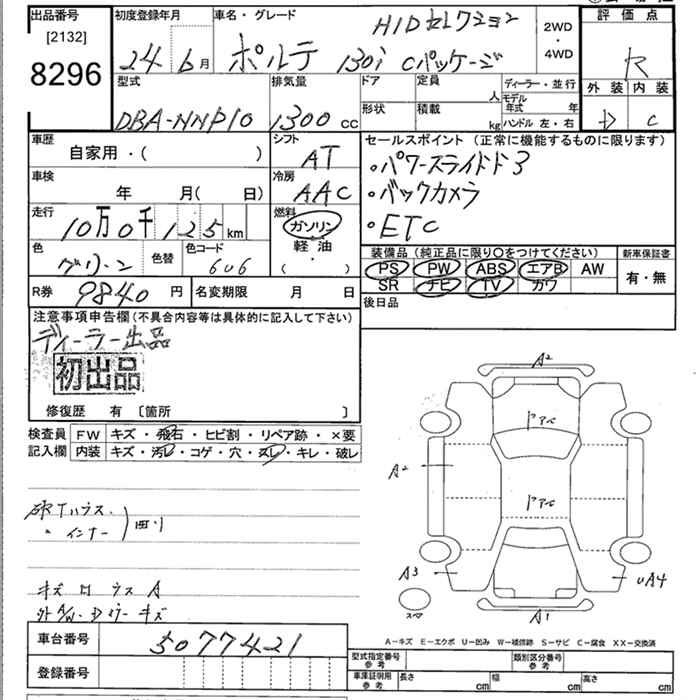 出品番号 初度登録年月 車名・グレード 評価点
[2132]
8296
24年6月 ポルテ 130i Cパッケージ HIDセレクション 2WD・4WD R
型式 排気量 ドア 定員 人 ディーラー・並行 外装 内装
DBA-NNP10 1300cc 形状 積載 kg モデル年式 年 ハンドル 左・右 D C
車歴 自家用・( ) シフト AT
セールスポイント(正常に機能するものに限ります)
・パワースライドドア
・バックカメラ
・ETC
車検 年 月( 日) 冷房 AAC
走行 10万0千125km 燃料 ガソリン
軽油・( )
色 グリーン 色替 色コード 6U6
装備品(純正品に限り○をつけてください) 新車保証書
PS PW ABS エアB AW 有・無
SR ナビ TV カワ
R券 9840円 名変期限 月 日
後日品
注意事項申告欄(不具合内容等は具体的に記入して下さい)
ディーラー出品
初出品
修復歴 有 [箇所 ]
検査員 FW キズ・飛石・ヒビ割・リペア跡・×要
記入欄 内装 キズ・汚レ・コゲ・穴・スレ・キレ・破レ
・インナー
A2
ドアベ
A2
ドアベ
A3
UA4
スペア
A1
キズ
車台番号 5077421
登録番号
A-キズ E-エクボ U-凹み W-補修跡 S-サビ C-腐食 XX-交換済
型式指定番号 参考 類別区分番号 参考
車庫証明用 参考 長さ cm 幅 cm 高さ cm